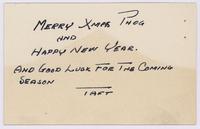 MERRY XMAS PHOG
AND
HAPPY NEW YEAR.
AND GOOD LUCK FOR THE COMING
SEASON
1 AFT